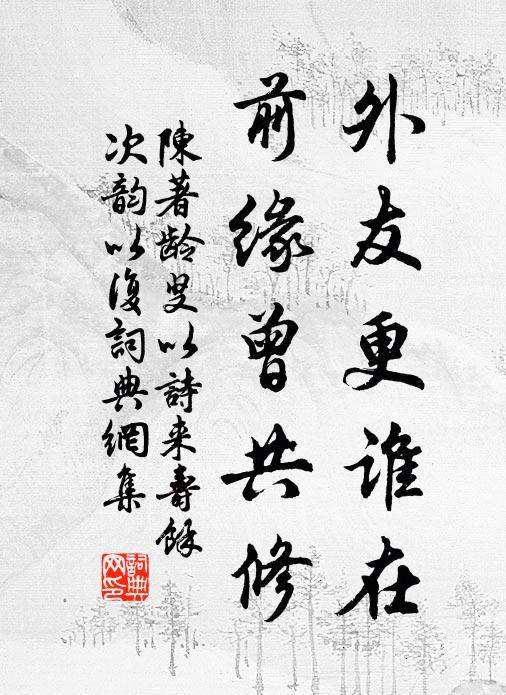 外友更谁在
前缘曾共修
陳著龄叟以詩来壽馀
次韵以復詞典網集
詞典网印